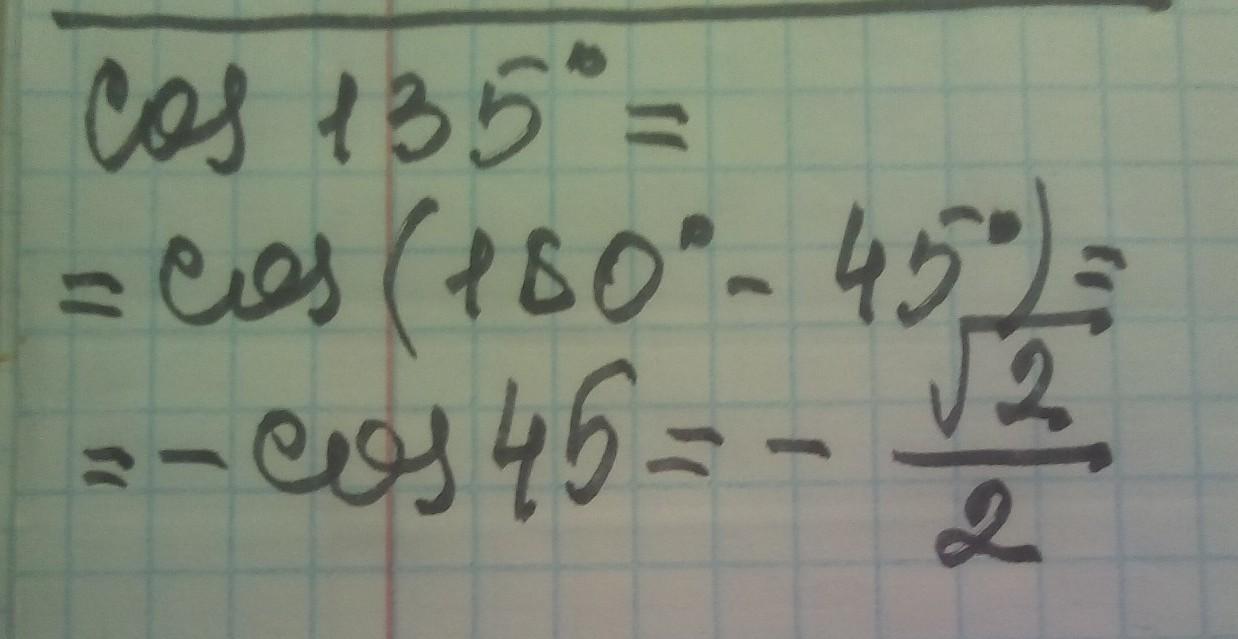 cos 135° =
= cos (180° - 45°) =
= - cos 45 = - √2/2